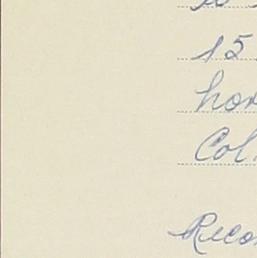 15
hor
Col
Reco